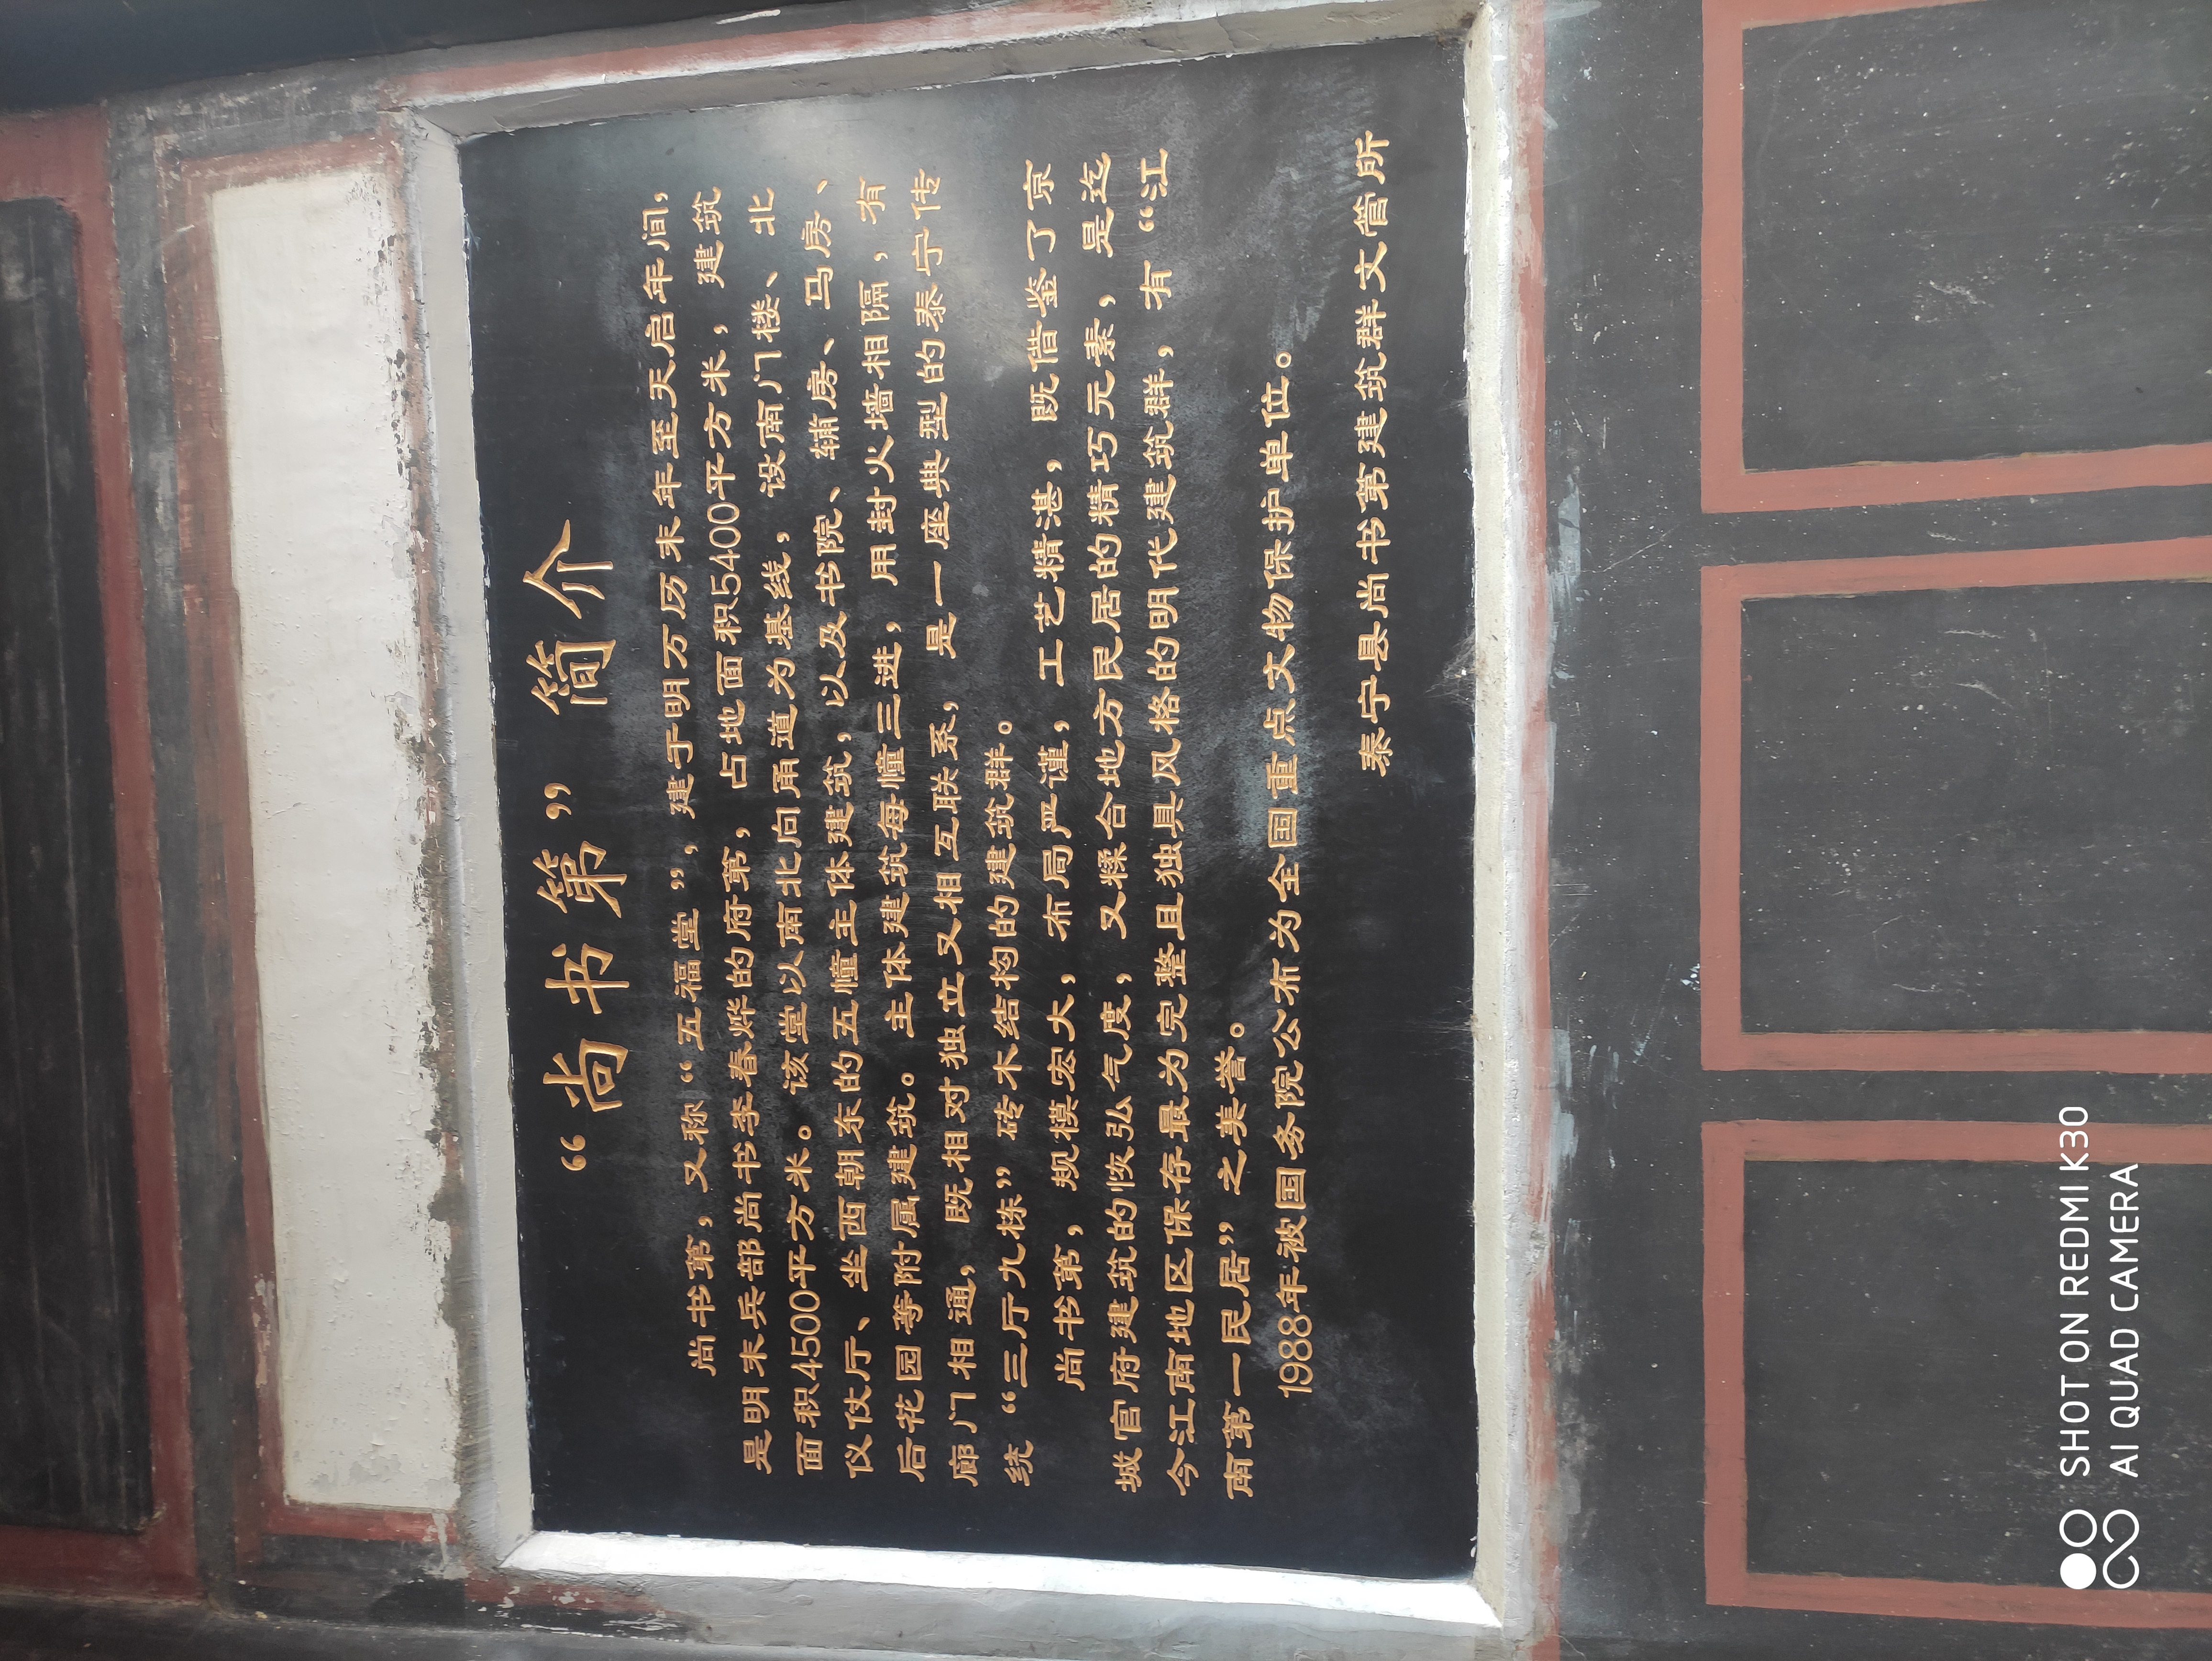 “尚书第” 简介
尚书第，又称“五福堂”，建于明万历末年至天启年间，
是明末兵部尚书李春烨的府第，占地面积5400平方米，建筑
面积4500平方米。该堂以南北向甬道为基线，设南门楼、北
仪仗厅、坐西朝东的五幢主体建筑，以及书院、辅房、马房、
后花园等附属建筑。主体建筑每幢三进，用封火墙相隔，有
廊门相通，既相对独立又相互联系，是一座典型的泰宁传
统“三厅九栋”砖木结构的建筑群。
尚书第，规模宏大，布局严谨，工艺精湛，既借鉴了京
城官府建筑的恢弘气度，又糅合地方民居的精巧元素，是迄
今江南地区保存最为完整且独具风格的明代建筑群，有“江
南第一民居”之美誉。
1988年被国务院公布为全国重点文物保护单位。
泰宁县尚书第建筑群文管所
SHOT ON REDMI K30
AI QUAD CAMERA